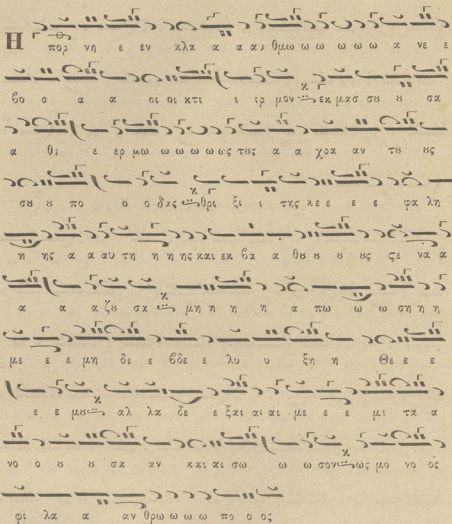 Η πορ νη ε εν κλα α α αυ θμω ω ω ω ω ω α νε ε
βο ο α α οι οι κτι ι ιρ μον εκ μασ σου ου σα
α θε ε ερ μω ω ω ω ω ως τους α α χρα αν του ους
σου ου πο ο ο δας θρι ξι ι της κε ε ε ε φα λη
η ης α α αυ τη η η ης και εκ βα α θου ου ου ους ςε να α
α α α ζου σα μη η η η α πω ω ω ση η η
με ε ε μη δε ε βδε ε λυ υ ξη η Θε ε ε
ε ε μου αλ λα δε ε ξαι αι αι με ε ε με τα α
νο ο ου ου σα αν και αι σω ω ω σον ως μο νο ος
φι λα α αν θρω ω ω ω πο ο ος